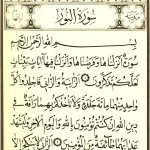 سورة النور
بسم الله الرحمن الرحيم
سورة أنزلناها وفرضناها وأنزلنا فيها آيات بينات
لعلكم تذكرون الزانية والزاني فاجلدوا كل
واحد منهما مائة جلدة ولا تأخذكم بهما رأفة في
دين الله إن كنتم تؤمنون بالله واليوم الآخر وليشهد
عذابهما طائفة من المؤمنين الزاني لا ينكح إلا